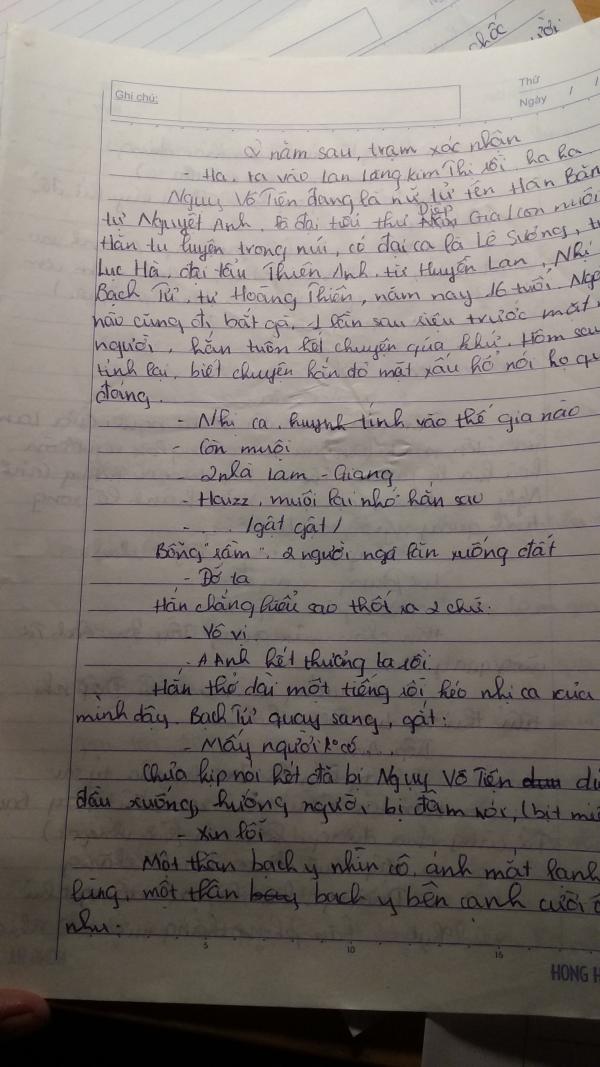 chốc
Thứ
Ghi chú:
Ngày / /
2 năm sau, trạm xác nhân
- Ha, ta vào lan lăng kim Thi rồi ha ha
Nguỵ Vô Tiện đang là nữ, tử tên Hàn Băn
tự Nguyệt Anh, là đại tiểu thư Diệp Gia/con nuôi
Hàn tu luyện trong núi, có đại ca là Lê Sương, t
Lục Hà, đại tẩu Thiên Anh, tự Huyễn Lan, Nhị
Bạch Tử, tự Hoàng Thiên, năm nay 16 tuổi Ng
nào cũng đi bắt gà, 1 lần sau siêu trước mặt
người, hắn tuôn hết chuyện quá khứ. Hôm sau
tỉnh lại, biết chuyện hắn đỏ mặt xấu hổ nói họ qu
đáng.
- Nhị ca, huynh tính vào thế gia nào
- Còn muội
- 2 nhà Lam - Giang
- Hauzz, muội lại nhớ hắn sao
- ... /gật gật/
Bỗng "rầm", 2 người ngã lăn xuống đất
- Đó ta
Hắn chẳng hiểu sao thốt ra 2 chữ:
- Vô vị
- A Anh hết thương ta rồi
Hắn thở dài một tiếng rồi kéo nhị ca của
mình dậy. Bạch Tử quay sang, gắt:
- Mấy người k° có ...
Chưa kịp nói hết đã bị Nguỵ Vô Tiện
đầu xuống, hướng người bị đâm nói, (bịt mi
- Xin lỗi
Một thân bạch y nhìn cô, ánh mắt lạnh
lùng, một thân bạch y bên cạnh cười
như:
5 10 15
HONG H